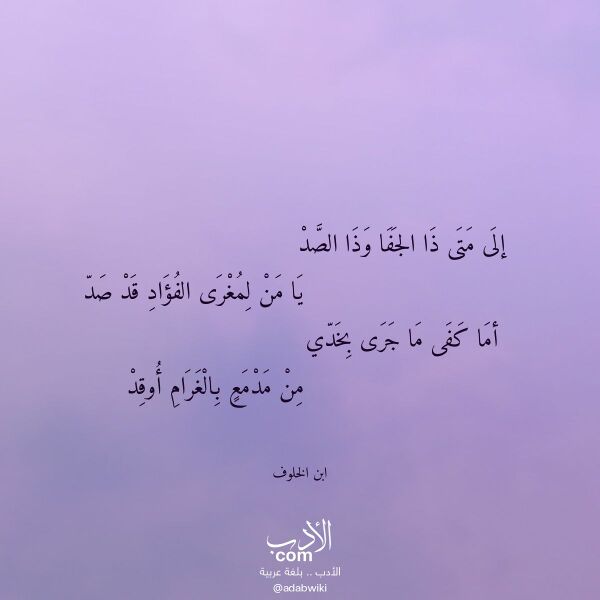 إلَى مَتَى ذَا الجَفَا وَذَا الصَّدْ
يَا مَنْ لِمُغْرَى الفُؤَادِ قَدْ صَدّ
أمَا كَفَى مَا جَرَى بِخَدّي
مِنْ مَدْمَعٍ بِالْغَرَامِ أُوقِدْ
ابن الخلوف
الأدب
.com
الأدب .. بلغة عربية
@adabwiki